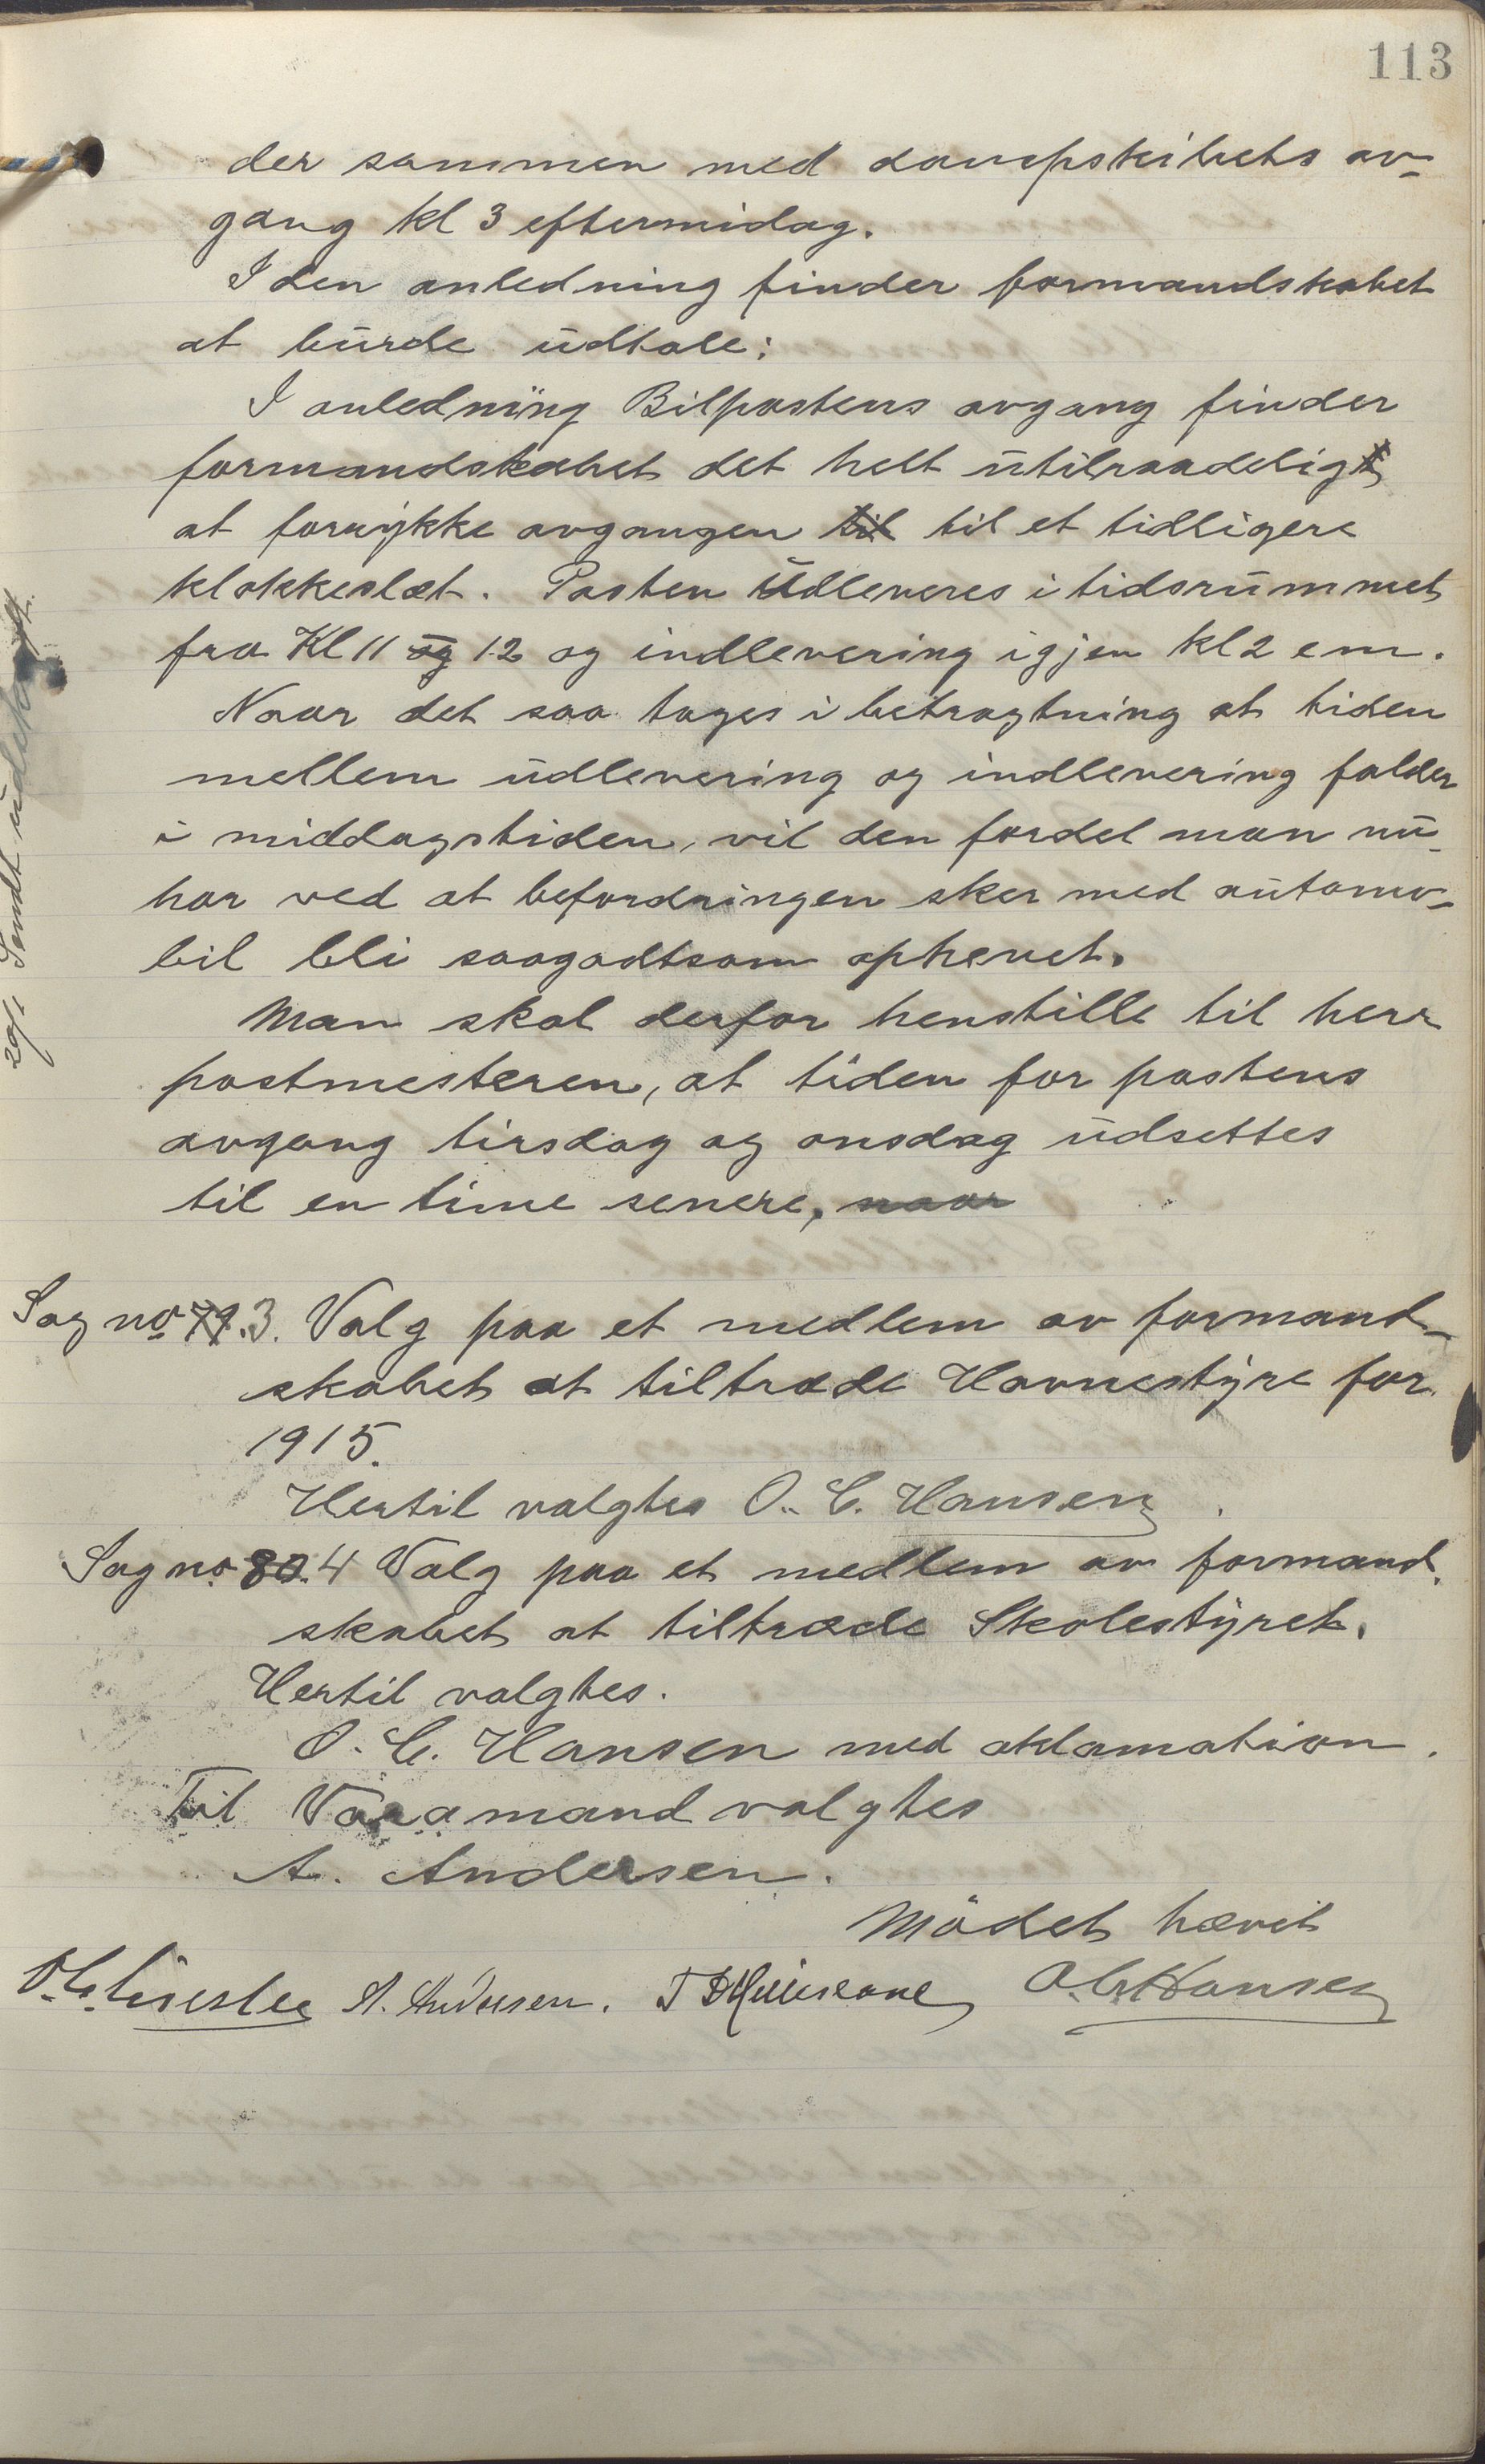 113
der sammen med dampskibets av-
gang kl 3 eftermidag.
I den anledning finder formandskabet
at burde udtale:
I anledning Bilpostens avgang finder
formandskabet det helt utilraadelig
at forrykke avgangen til til et tidligere
klokkeslæt. Posten Udleveres i tidsrummet
fra Kl 11 og 12 og indlevering igjen kl 2 em.
Naar det saa tages i betragtning at tiden
mellem udlevering og indlevering falder
i middagstiden, vil den fordel man nu
har ved at befordringen sker med automo-
bil bli saagodtsom ophevet.
Man skal derfor henstille til herr
postmesteren, at tiden for postens
avgang tirsdag og onsdag udsettes
til en time senere, naar
Sag no 79.3. Valg paa et medlem av formand-
skabet at tiltræde Havnestyre for
1915.
Hertil valgtes O. C. Hansen.
Sag no 80.4 Valg paa et medlem av formand-
skabet at tiltræde Skolestyret.
Hertil valgtes.
O. C. Hansen med aklamation.
Til Varamand valgtes
A. Andersen.
Mödet hævet
A. Andersen. O. C. Hansen
Sendt udskrift